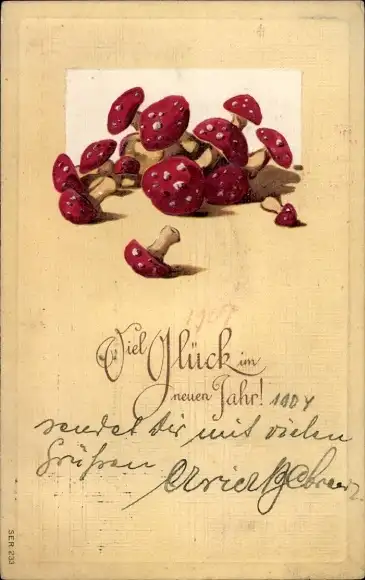 1907
Viel Glück im
neuen Jahr! 1907
sendet dir mit vielen
Grüßen
SER. 233